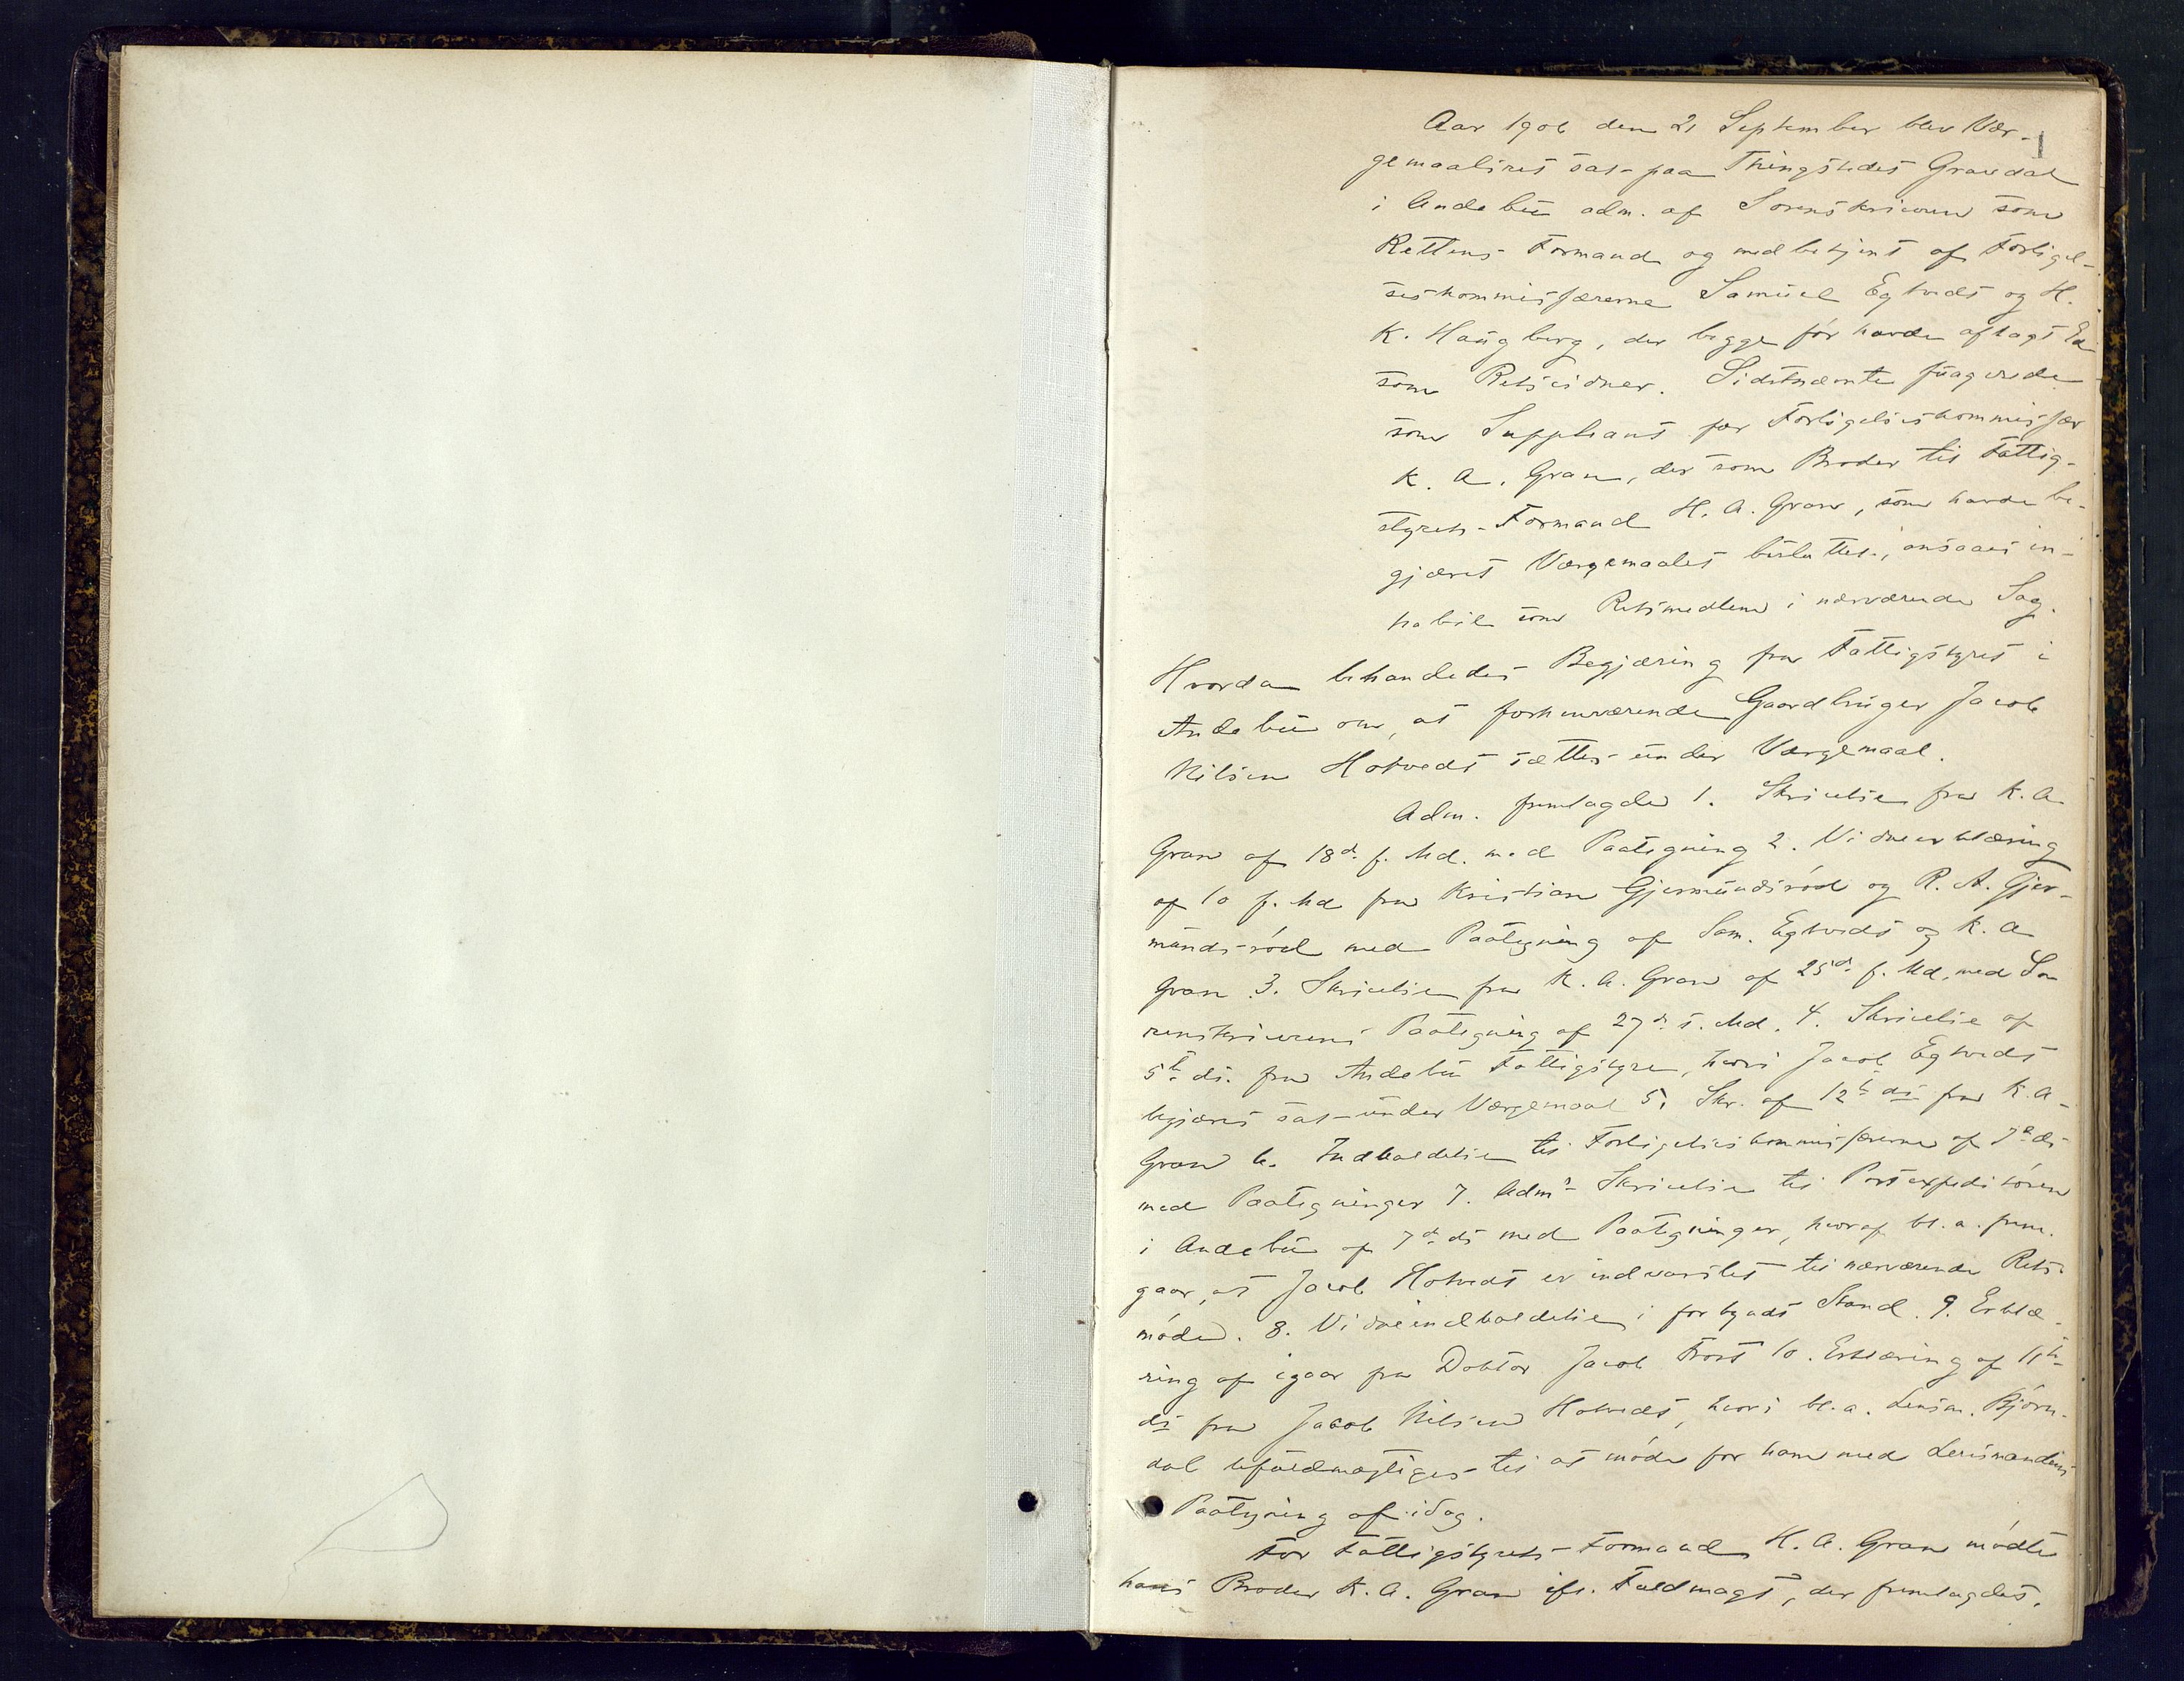 1
Aar 1906 den 21 September blev Vær-
gemaalsret sat paa Thingstedet Gravdal
i Andebu adm. af Sorenskriveren som
Rettens Formand og medbetjent af Forligel-
seskommissærerne Samuel Egtvedt og H.
K. Haugberg, der begge før havde aflagt Ed
som Retsvidner. Sidstnævnte fungerede
som Suppleant for Forligelseskommissær
K. A. Gran, der som Broder til Fattig-
styrets Formand H. A. Gran, som havde be-
gjæret Værgemaalet besluttet, ansaaes in-
habil som Retsmedlem i nærværende Sag.
Hvorda behandledes Begjæring fra Fattigstyret i
Andebu om, at forhenværende Gaardbruger Jacob
Nilsen Hotvedt sættes under Værgemaal.
Adm. fremlagde 1. Skrivelse fra K. A.
Gran af 18d. f. Md. med Paategning 2. Vidneerklæring
af 10 f. Md fra Kristian Gjermundsrød og R. A. Gjer-
mundsrød med Paategning af Sam. Egtvedt og K. A
Gran 3. Skrivelse fra K. A. Gran af 25d. f. Md. med So
renskriverens Paategning af 27d. s. Md. 4. Skrivelse af
5t. ds. fra Andebu Fattigstyre, hvori Jacob Egtvedt
begjæres sat under Værgemaal 5. Skr. af 12t ds fra K. A.
Gran 6. Indkaldelse til Forligelseskommissærerne af 7d ds
med Paategninger 7. Adms Skrivelse til Postexpeditøren
i Andebu af 7d ds med Paategninger, hvoraf bl. a. frem-
gaar, at Jacob Hotvedt er indvarslet til nærværende Rets-
møde. 8. Vidneindkaldelse i forkyndt Stand. 9. Erklæ-
ring af igaar fra Doktor Jacob Frost 10. Erklæring af 11t
ds fra Jacob Nilsen Hotvedt, hvori bl. a. Lensm. Bjørn-
dal befuldmægtiges til at møde for ham med Lensmandens
Paategning af idag.
For Fattigstyrets Formand H. A. Gran mødte
hans Broder K. A. Gran ifl. Fuldmagt, der fremlagdes.